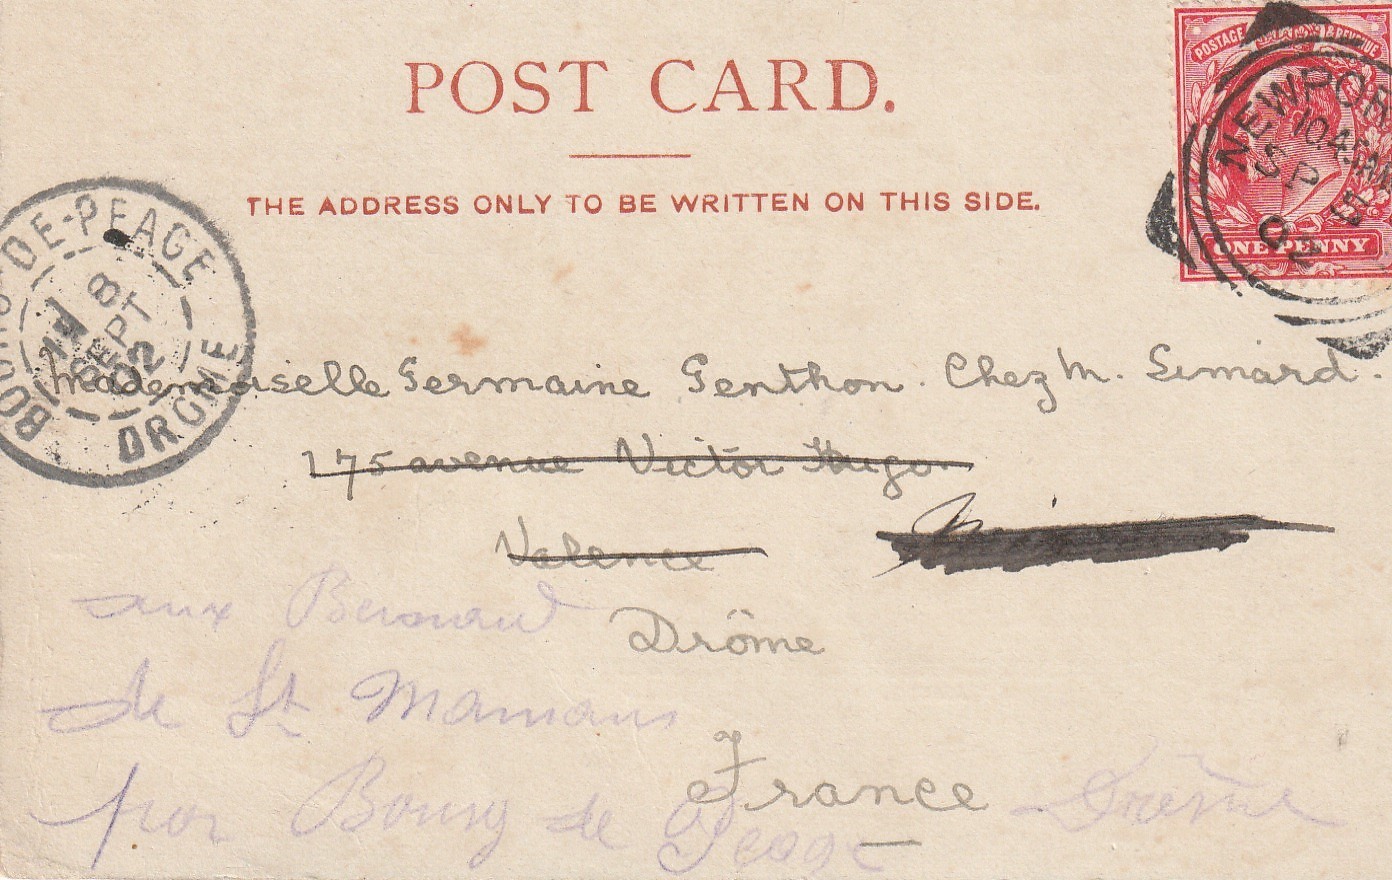 POST CARD.
THE ADDRESS ONLY TO BE WRITTEN ON THIS SIDE.
POSTAGE & REVENUE
ONE PENNY
NEWPOR
10 45 AM
SP 5
02
BOURG-DE-PEAGE
8
SEPT
02
DROME
Mademoiselle Germaine Genthon. Chez M. Simard.
175 avenue Victor Hugo
Valence
Drôme
France
aux
de St Mamans
par Bourg de Peage Drôme